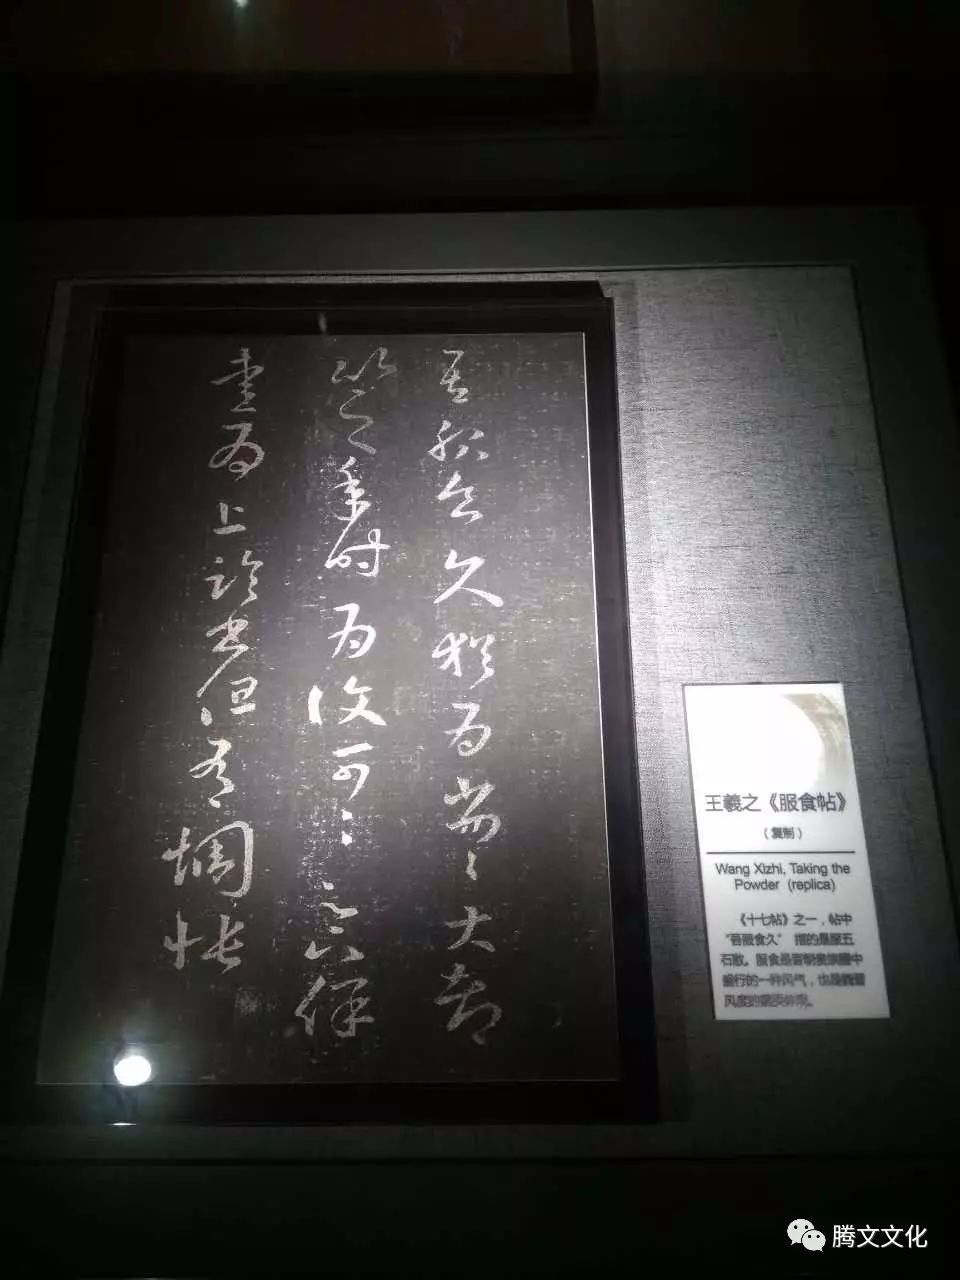 吾服食久猶為劣々大都
比之年時為復可々足下保
愛為上臨書但有惆悵
王羲之《服食帖》
（复制）
Wang Xizhi, Taking the
Powder (replica)
《十七帖》之一，帖中
“吾服食久” 指的是服五
石散。服食是晋朝贵族中
盛行的一种风气，也是魏晋
风度的体现。
腾文文化